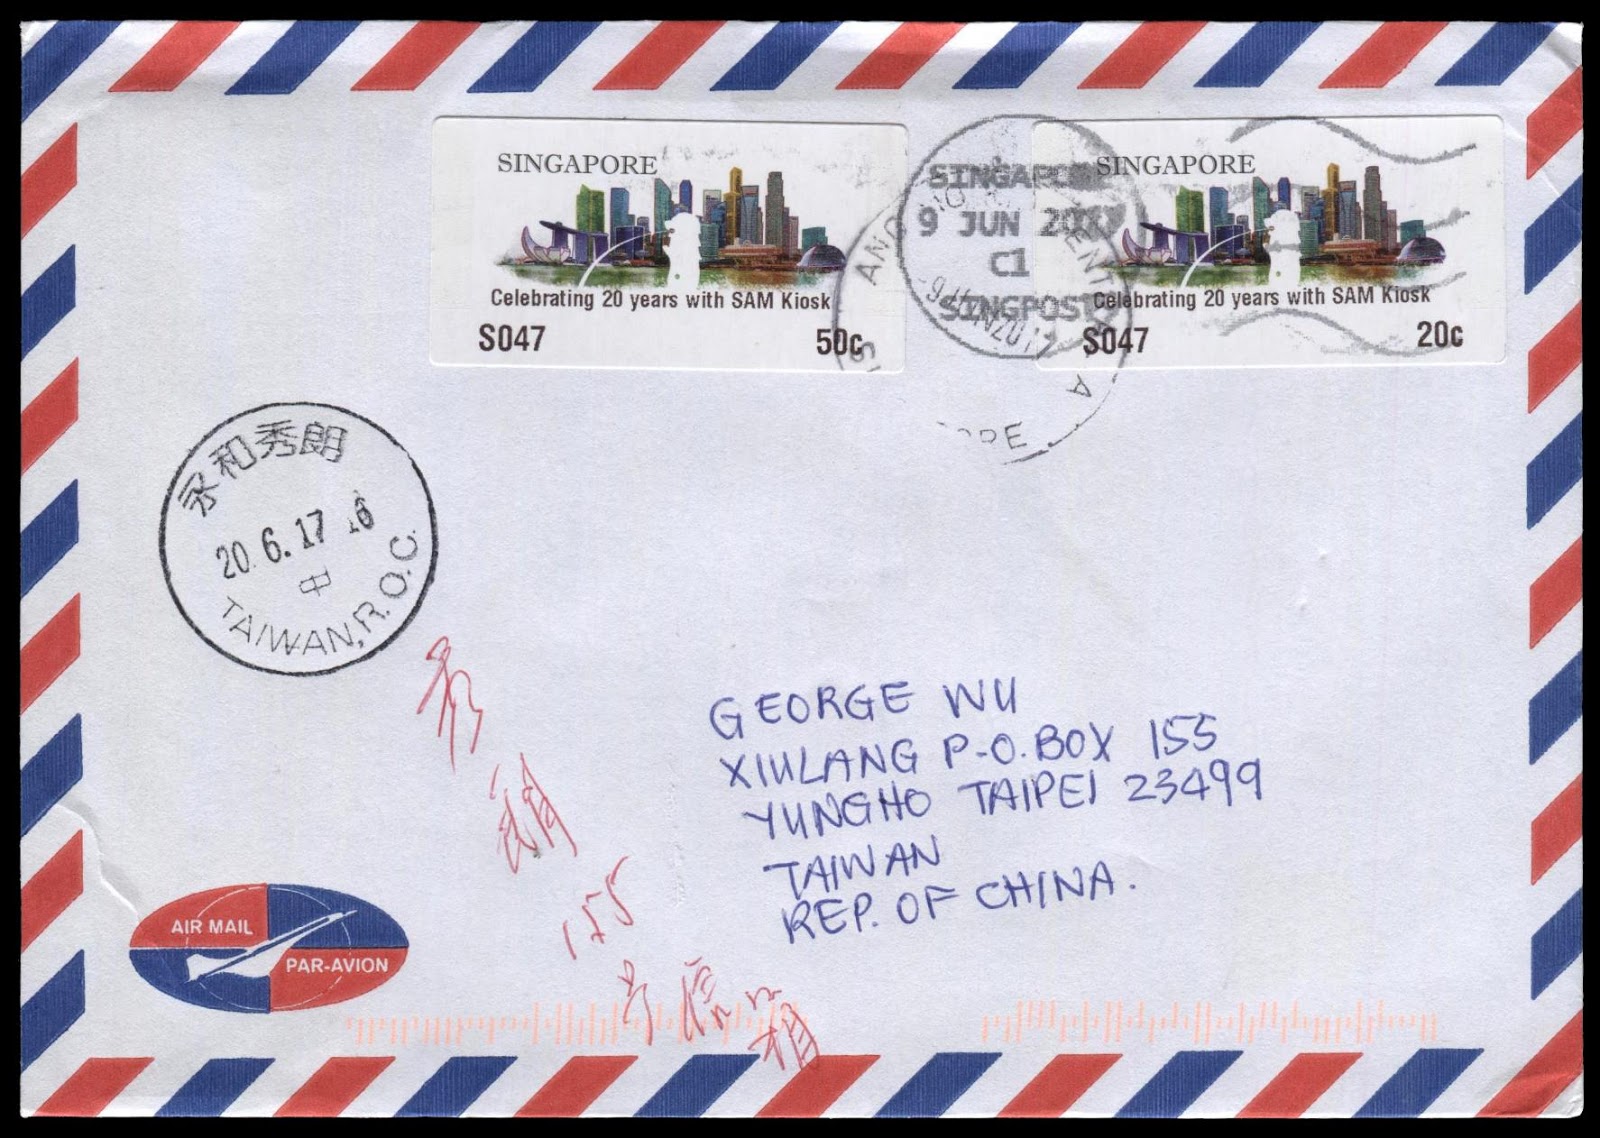 SINGAPORE
Celebrating 20 years with SAM Kiosk
S047 50c
SINGAPORE
Celebrating 20 years with SAM Kiosk
S047 20c
SINGAPORE
9 JUN 2017
C1
SINGPOST
永和秀朗
20.6.17 16
中
TAIWAN, R.O.C.
GEORGE WU
XIULANG P.O. BOX 155
YUNGHO TAIPEI 23499
TAIWAN
REP. OF CHINA.
秀朗
155
号信箱
AIR MAIL
PAR-AVION